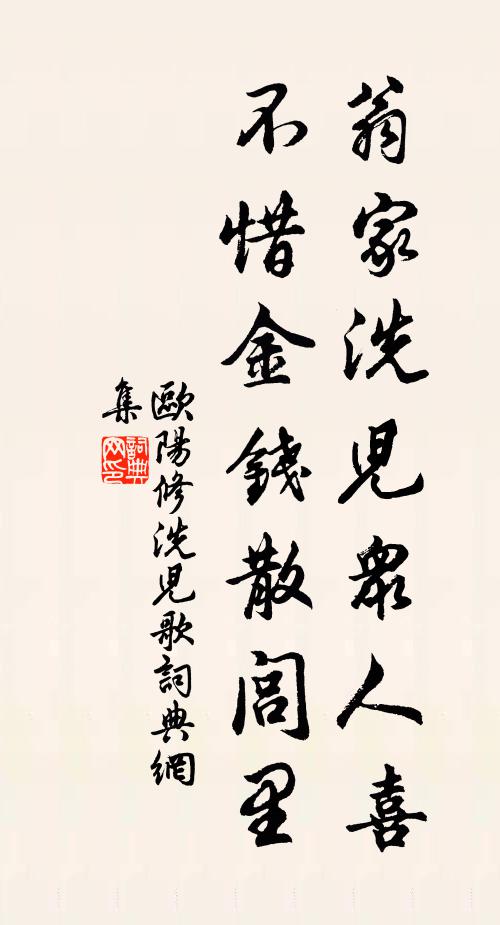 翁家洗兒衆人喜
不惜金錢散閭里
歐陽修洗兒歌詞典網
集
詞典網印